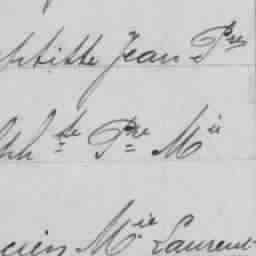 ptiste Jean Pre
ph te Pre Mie
cien Mie Laurent